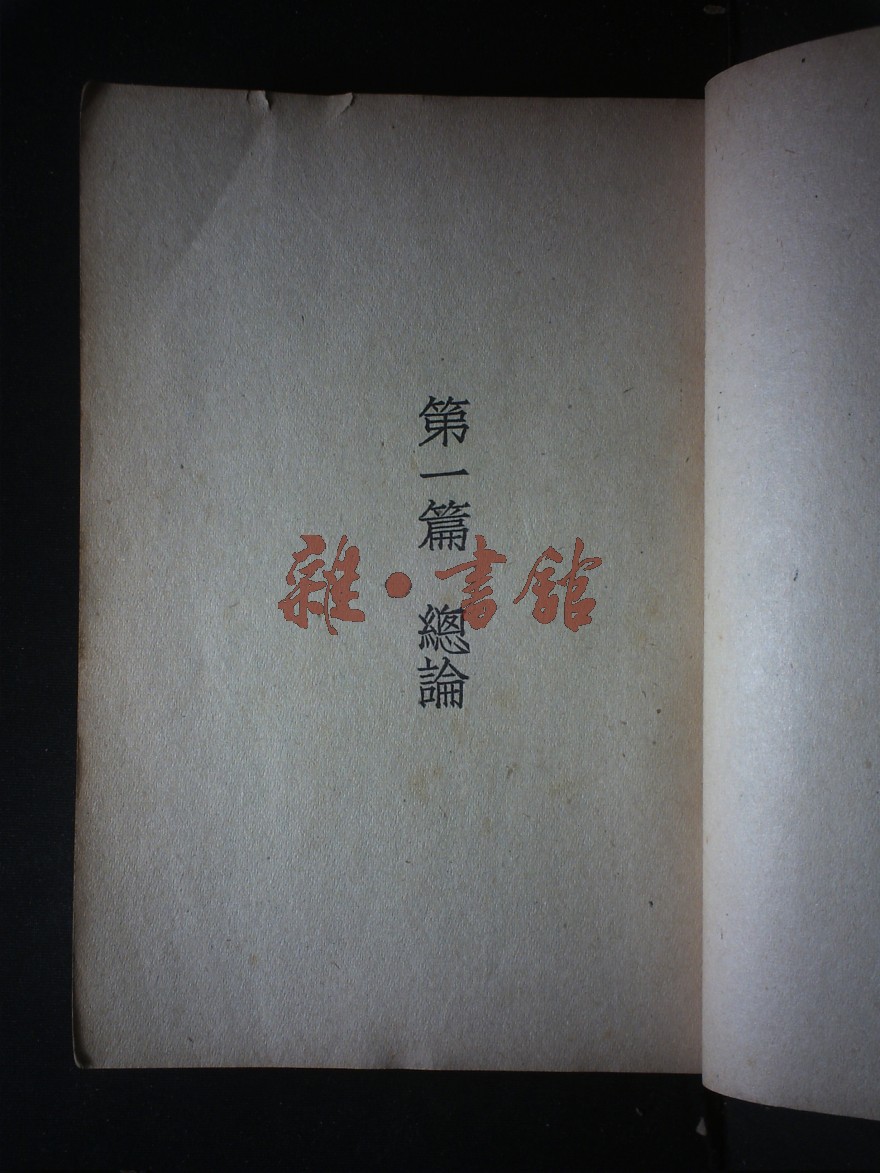 第一篇 總論
雜·書館